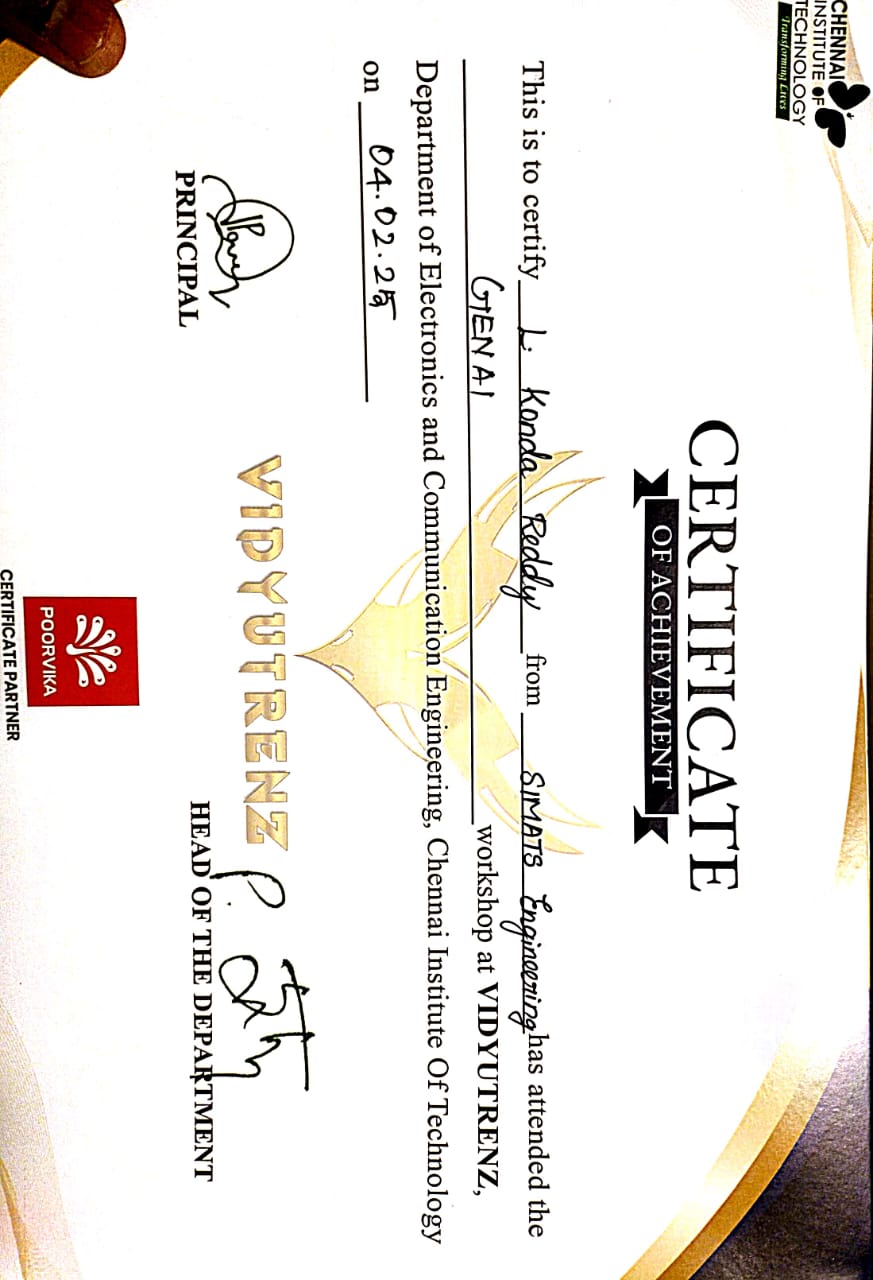 CHENNAI
INSTITUTE OF
TECHNOLOGY
Transforming Lives
CERTIFICATE
OF ACHIEVEMENT
This is to certify L. Konda Reddy from SIMATS Engineering has attended the
GENAI workshop at VIDYUTRENZ,
Department of Electronics and Communication Engineering, Chennai Institute Of Technology
on 04.02.25
VIDYUTRENZ
PRINCIPAL
HEAD OF THE DEPARTMENT
POORVIKA
CERTIFICATE PARTNER